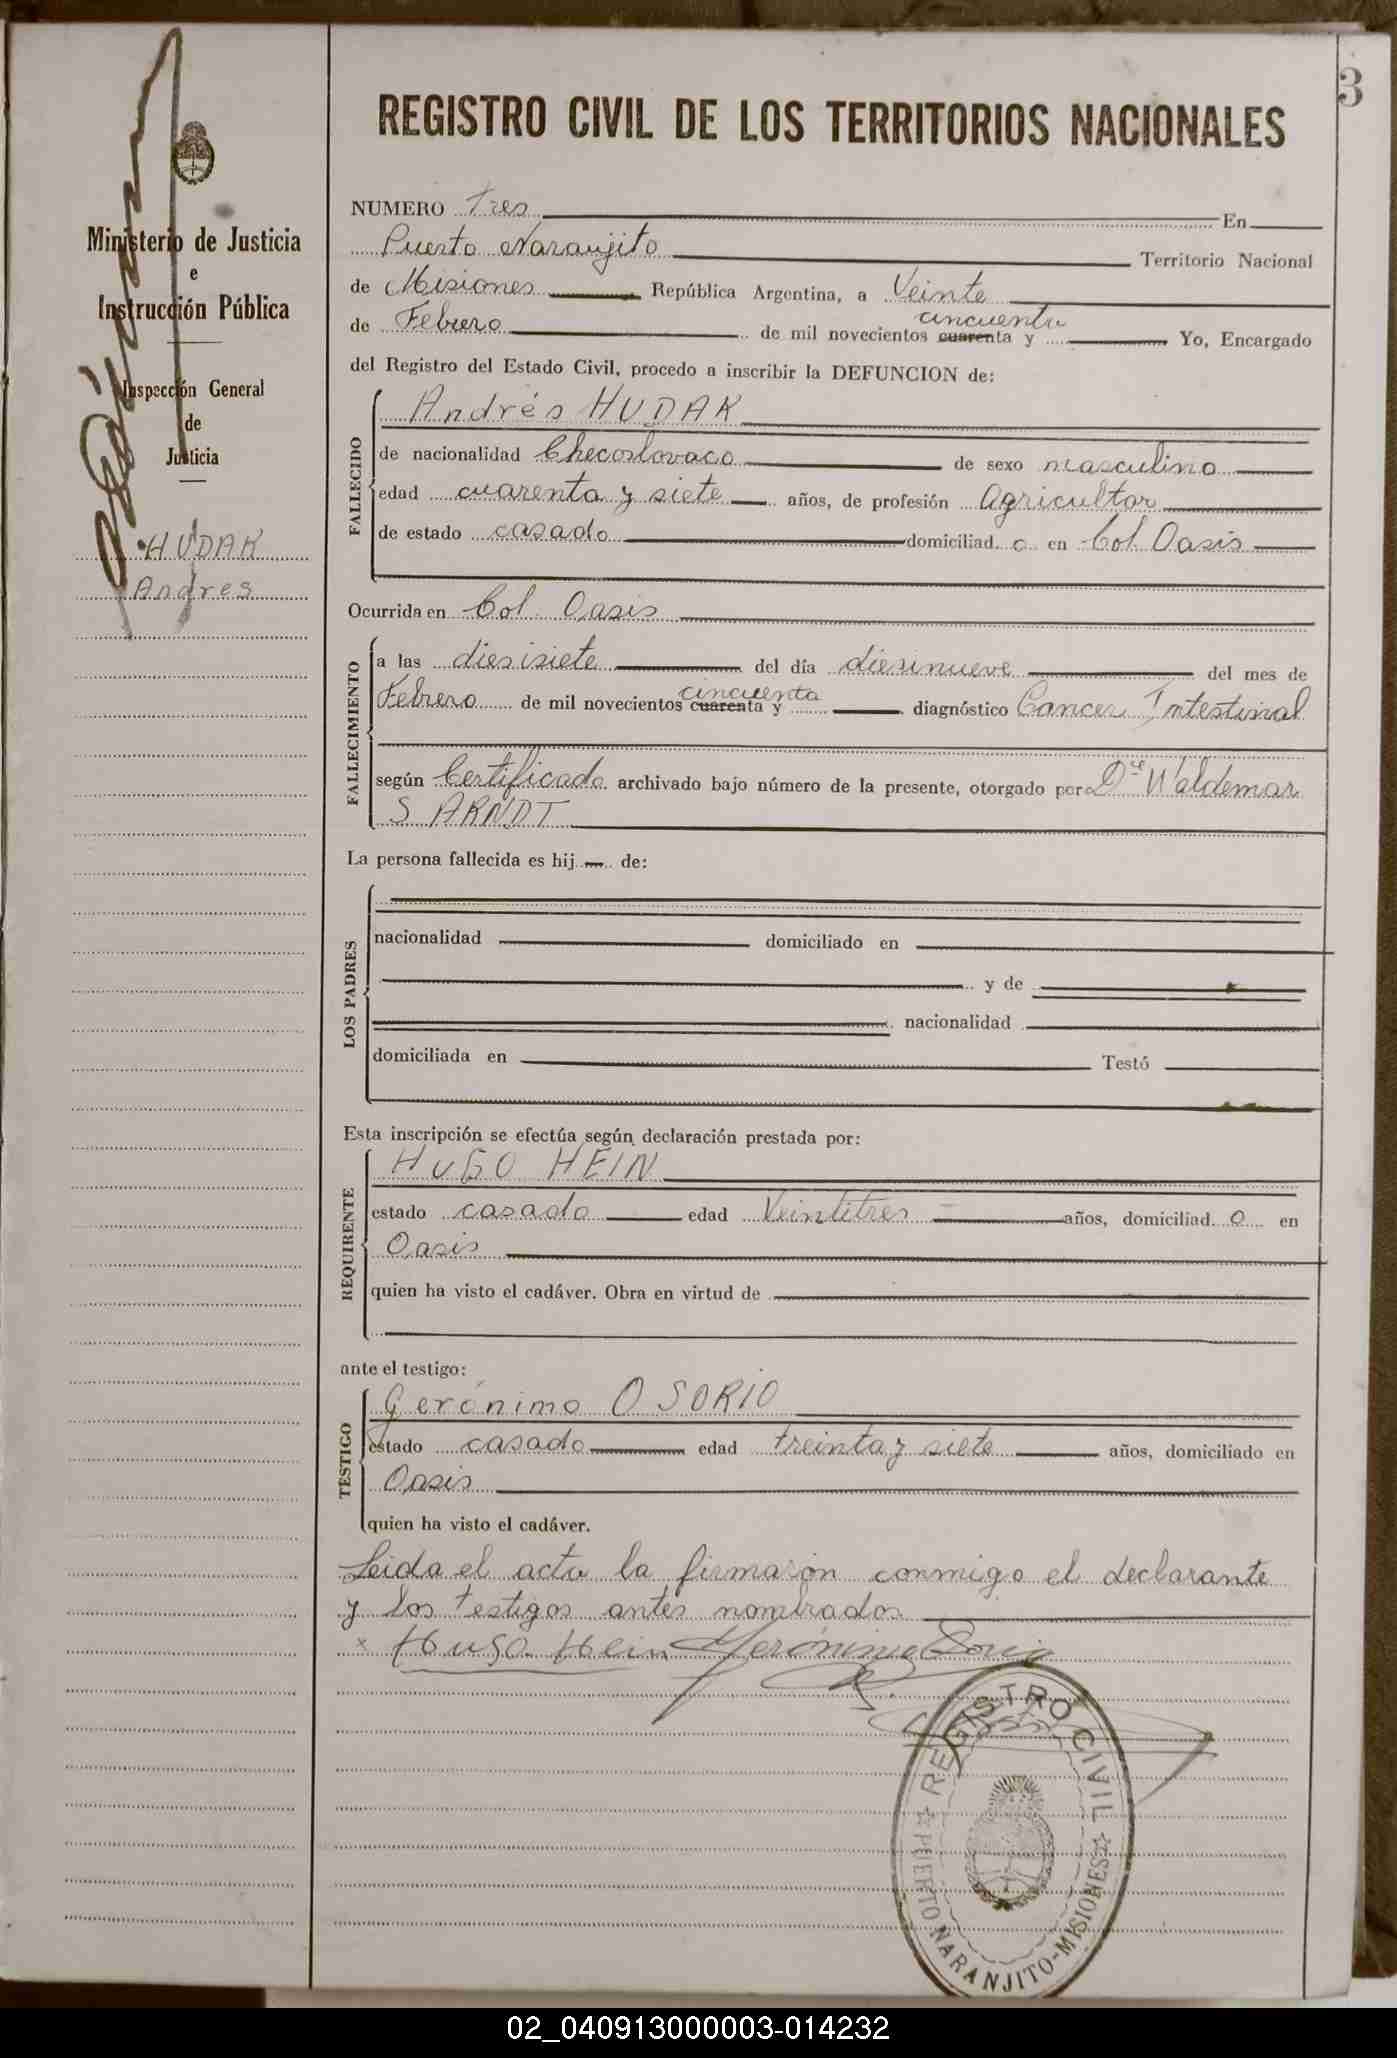 3
REGISTRO CIVIL DE LOS TERRITORIOS NACIONALES
Ministerio de Justicia
e
Instrucción Pública
Inspección General
de
Justicia
HUDAK
Andres
NUMERO Tres En
Puerto Naranjito Territorio Nacional
de Misiones República Argentina, a Veinte
cincuenta
de Febrero de mil novecientos cuarenta y Yo, Encargado
del Registro del Estado Civil, procedo a inscribir la DEFUNCION de:
FALLECIDO
Andrés HUDAK
de nacionalidad Checoslovaco de sexo masculino
edad cuarenta y siete años, de profesión Agricultor
de estado casado domiciliad o en Col. Oasis
Ocurrida en Col. Oasis
FALLECIMIENTO
a las diesisiete del día diesinueve del mes de
cincuenta
Febrero de mil novecientos cuarenta y diagnóstico Cancer Intestinal
según Certificado archivado bajo número de la presente, otorgado por Waldemar
S ARNDT
La persona fallecida es hij de:
LOS PADRES
nacionalidad domiciliado en
y de
nacionalidad
domiciliada en Testó
Esta inscripción se efectúa según declaración prestada por:
REQUIRENTE
HUGO HEIN
estado casado edad Veintitres años, domiciliad o en
Oasis
quien ha visto el cadáver. Obra en virtud de
ante el testigo:
TESTIGO
Gerónimo OSORIO
estado casado edad treinta y siete años, domiciliado en
Oasis
quien ha visto el cadáver.
Leida el acta la firmaron conmigo el declarante
y los testigos antes nombrados
x Hugo Hein Gerónimo
REGISTRO CIVIL
PUERTO NARANJITO-MISIONES
02_040913000003-014232